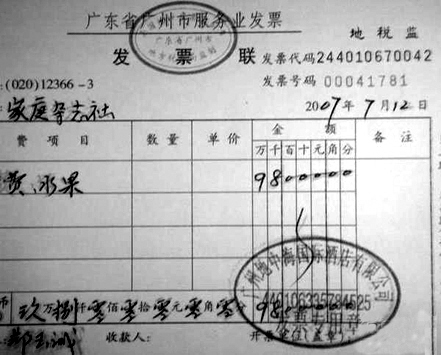 广东省广州市服务业发票
地税监
发票联
发票代码 244010670042
发票号码 00041781
:(020)12366-3
家庭杂志社
2007年7月12日
费项目 数量 单价 金额 备注
万千百十元角分
费、水果 9800000
玖万捌仟零佰零拾零元零角零分
广州地中海国际酒店有限公司
440106335784525
发票专用章
收款人:
开票单位(盖章)